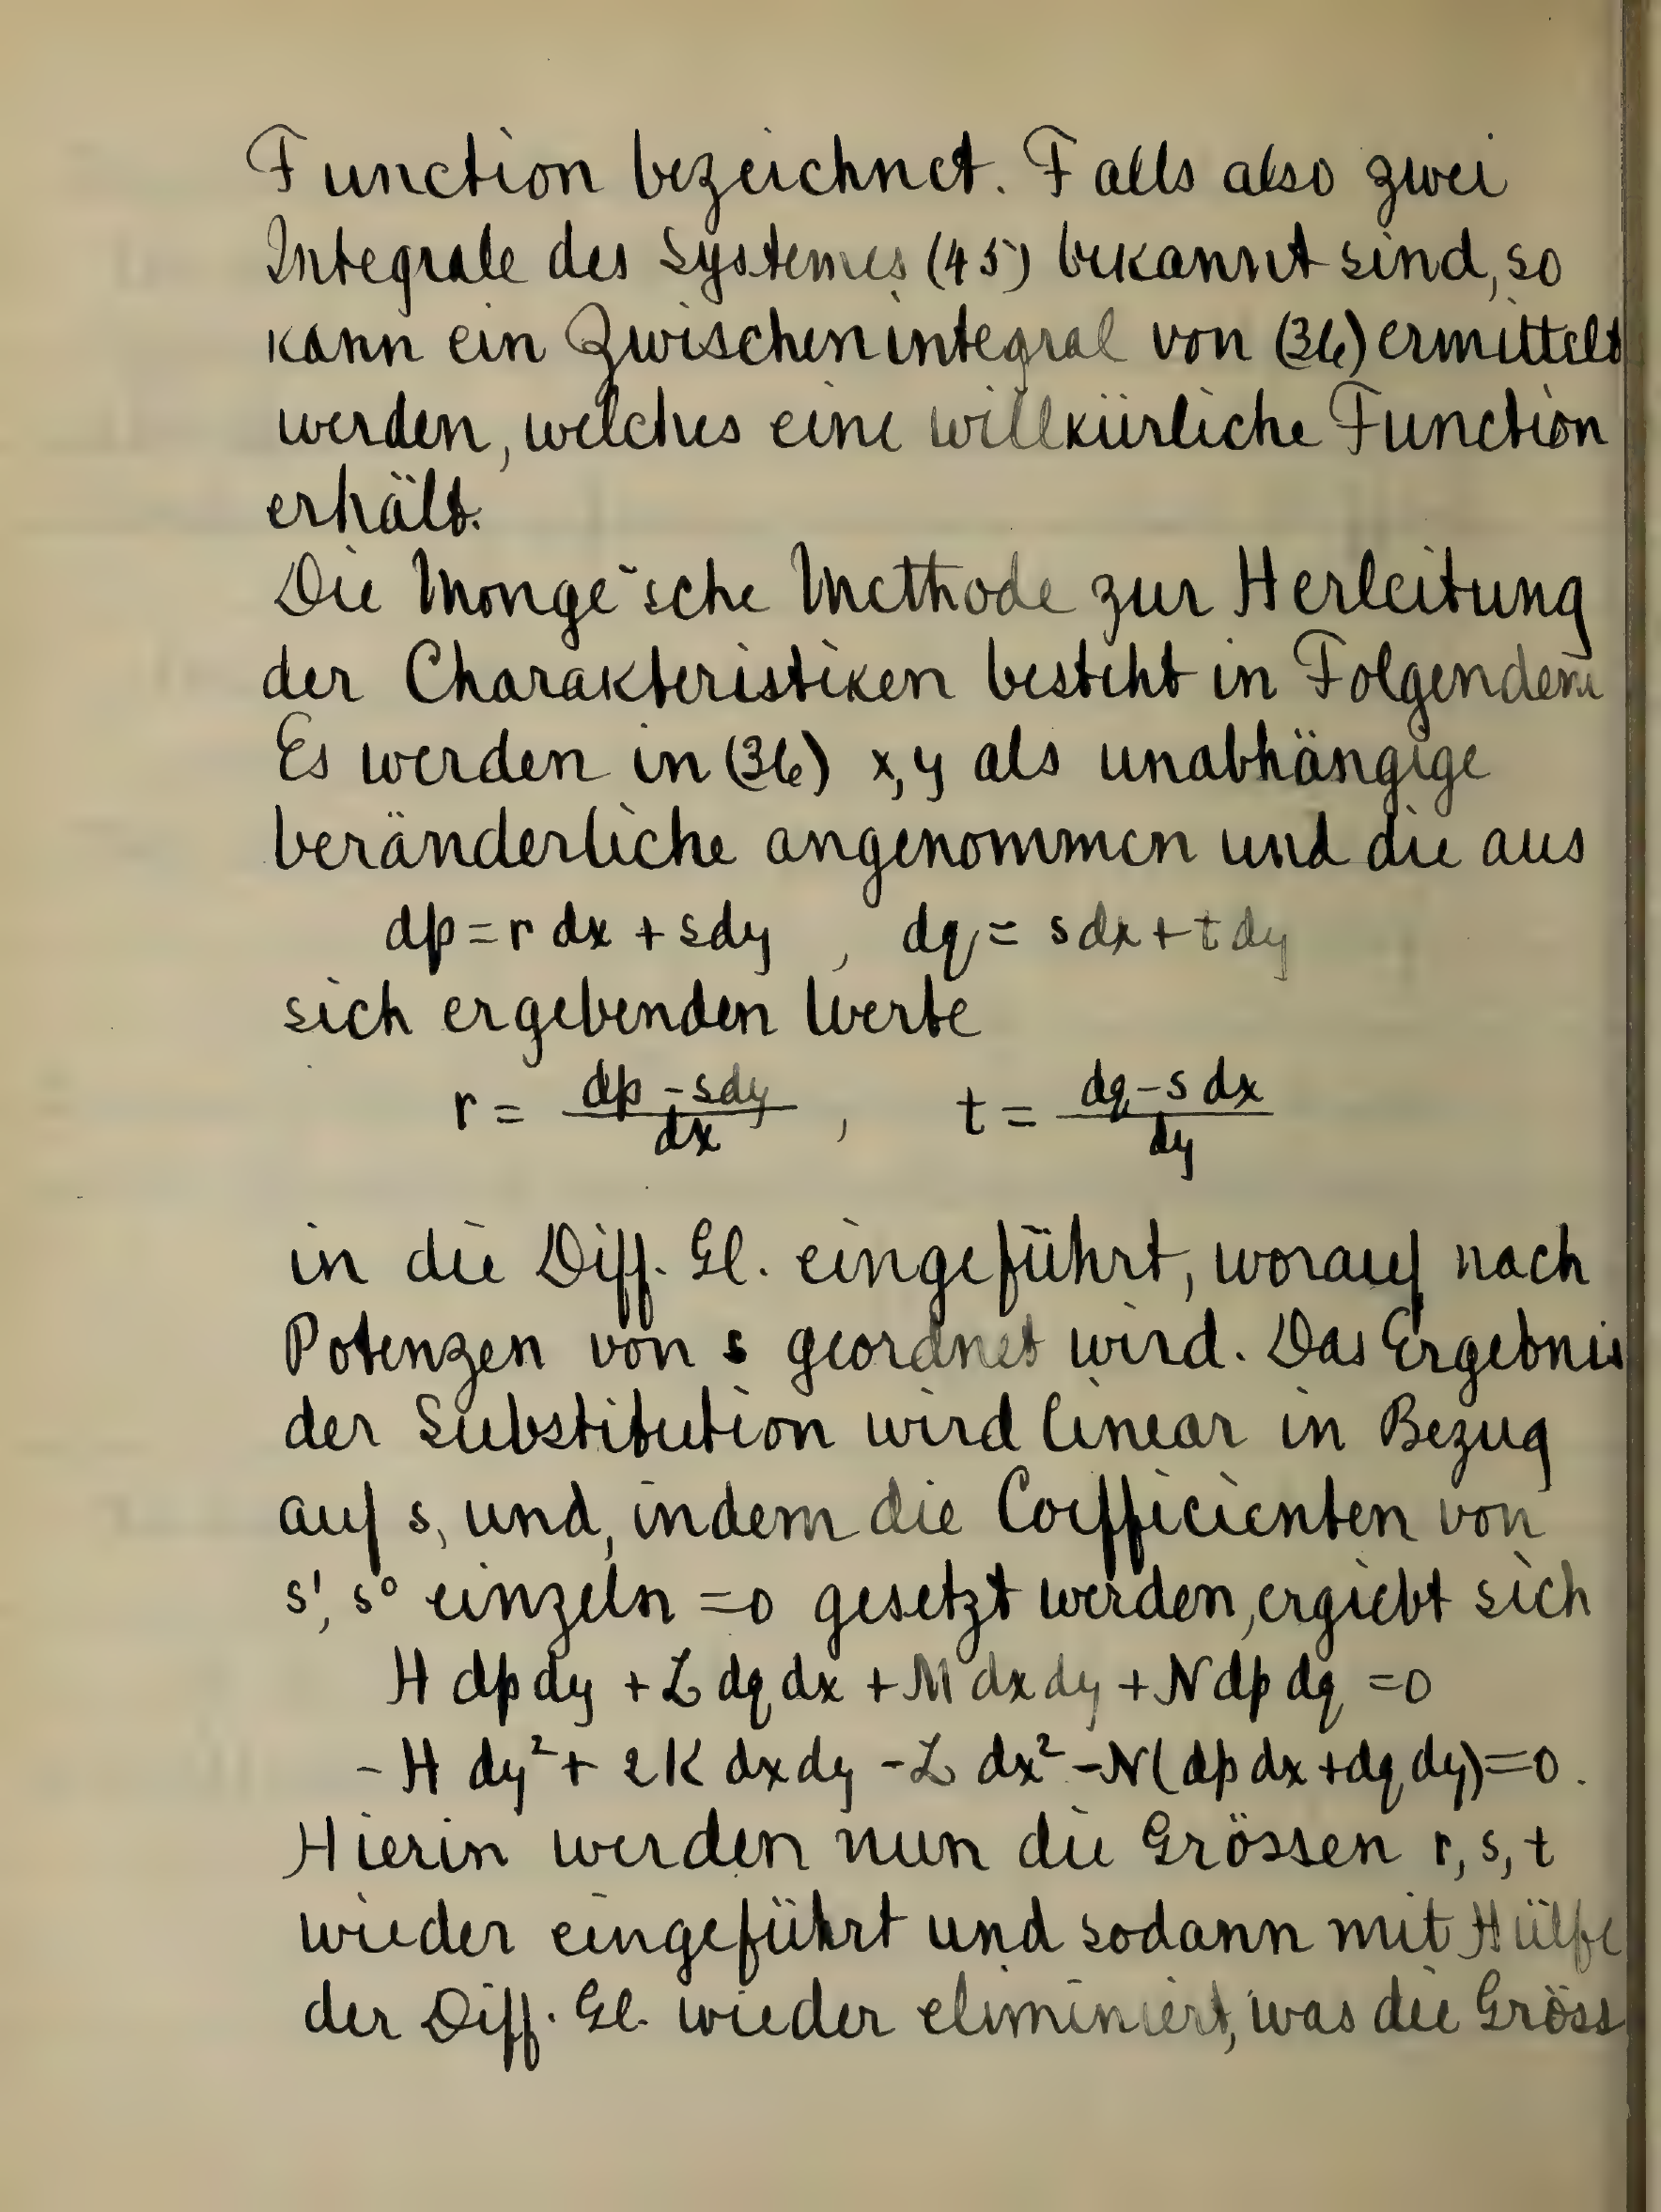 Function bezeichnet. Falls also zwei
Integrale des Systemes (45) bekannt sind, so
kann ein Zwischenintegral von (36) ermittelt
werden, welches eine willkürliche Function
erhält.
Die Monge'sche Methode zur Herleitung
der Charakteristiken besteht in Folgendem
Es werden in (36) x, y als unabhängige
veränderliche angenommen und die aus
dp = r dx + s dy , dq = s dx + t dy
sich ergebenden Werte
r = \frac{dp - s dy}{dx} , t = \frac{dq - s dx}{dy}
in die Diff. Gl. eingeführt, worauf nach
Potenzen von s geordnet wird. Das Ergebnis
der Substitution wird linear in Bezug
auf s, und, indem die Coefficienten von
s¹, s⁰ einzeln = 0 gesetzt werden, ergiebt sich
H dp dy + L dq dx + M dx dy + N dp dq = 0
- H dy² + 2K dx dy - L dx² - N(dp dx + dq dy) = 0.
Hierin werden nun die Grössen r, s, t
wieder eingeführt und sodann mit Hülfe
der Diff. Gl. wieder eliminiert, was die Gröss